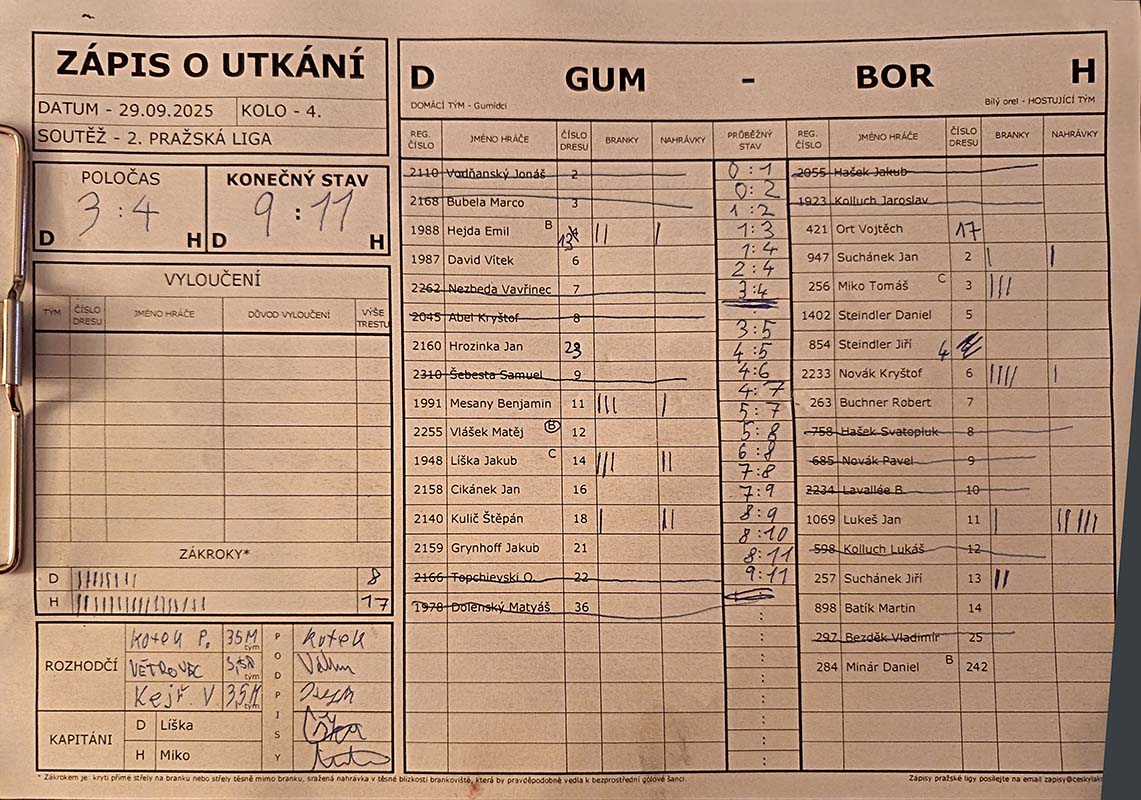 ZÁPIS O UTKÁNÍ
DATUM - 29.09.2025 KOLO - 4.
SOUTĚŽ - 2. PRAŽSKÁ LIGA
POLOČAS KONEČNÝ STAV
3 : 4 9 : 11
D H D H
VYLOUČENÍ
TÝM ČÍSLO DRESU JMÉNO HRÁČE DŮVOD VYLOUČENÍ VÝŠE TRESTU
ZÁKROKY*
D |||||||| 8
H ||||||||||||||||| 17
ROZHODČÍ
Kotek P. 35M tým Kotek
VĚTROVEC tým
Kejř. V. 35M tým
PODPISY
KAPITÁNI
D Líška
H Miko
D GUM - BOR H
DOMÁCÍ TÝM - Gumídci Bílý orel - HOSTUJÍCÍ TÝM
REG. ČÍSLO JMÉNO HRÁČE ČÍSLO DRESU BRANKY NAHRÁVKY PRŮBĚŽNÝ STAV REG. ČÍSLO JMÉNO HRÁČE ČÍSLO DRESU BRANKY NAHRÁVKY
2110 Vodňanský Jonáš 2
2168 Bubela Marco 3
1988 Hejda Emil B 13 || |
1987 David Vítek 6
2262 Nezbeda Vavřinec 7
2045 Abel Kryštof 8
2160 Hrozinka Jan 23
2310 Šebesta Samuel 9
1991 Mesany Benjamin 11 ||| |
2255 Vlášek Matěj B 12
1948 Líška Jakub C 14 ||| ||
2158 Cikánek Jan 16
2140 Kulič Štěpán 18 | ||
2159 Grynhoff Jakub 21
2166 Topchievski O. 22
1978 Dolenský Matyáš 36
0 : 1
0 : 2
1 : 2
1 : 3
1 : 4
2 : 4
3 : 4
3 : 5
4 : 5
4 : 6
4 : 7
5 : 7
5 : 8
6 : 8
7 : 8
7 : 9
8 : 9
8 : 10
8 : 11
9 : 11
2055 Hašek Jakub
1923 Kolluch Jaroslav
421 Ort Vojtěch 17
947 Suchánek Jan 2 | |
256 Miko Tomáš C 3 |||
1402 Steindler Daniel 5
854 Steindler Jiří 4
2233 Novák Kryštof 6 |||| |
263 Buchner Robert 7
758 Hašek Svatopluk 8
685 Novák Pavel 9
2234 Lavallée B. 10
1069 Lukeš Jan 11 | |||||
598 Kolluch Lukáš 12
257 Suchánek Jiří 13 ||
898 Batík Martin 14
297 Bezděk Vladimír 25
284 Minár Daniel B 242
* Zákrokem je: krytí přímé střely na branku nebo střely těsně mimo branku, sražená nahrávka v těsné blízkosti brankoviště, která by pravděpodobně vedla k bezprostřední gólové šanci.
Zápisy pražské ligy posílejte na email zapisy@ceskylakr